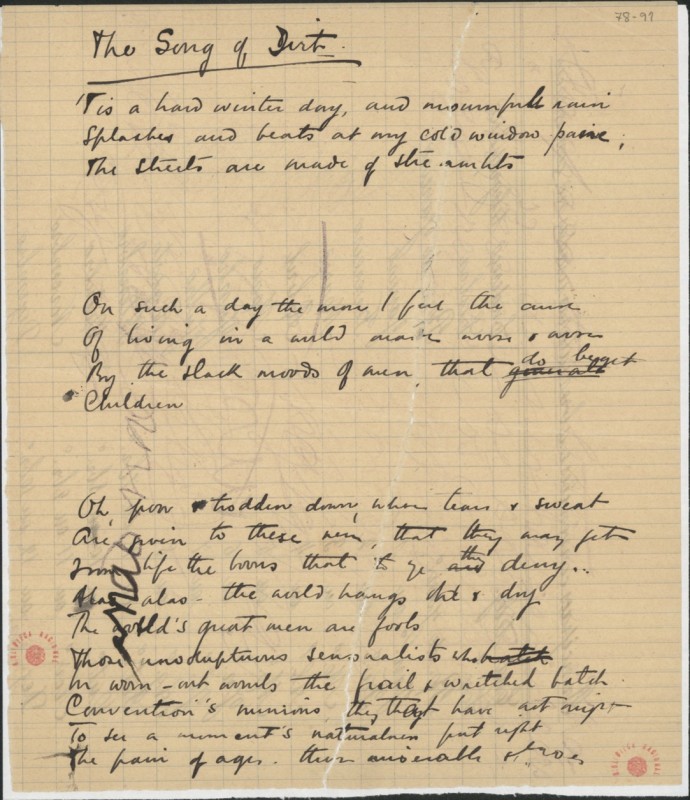 78-91
The Song of Dirt.
'Tis a hard winter day, and mournfull rain
Splashes and beats at my cold window pane;
The streets are made of
On such a day the more I feel the curse
Of living in a world made worse & worse
By the slack moods of men that do begget
Children
Oh, poor & trodden down, whose tears & sweat
Are given to these men, that they may get
From life the boons that to ye they deny..
alas - the world hangs &  dry
The world's great men are fools
Those sensualists who
In worn-out wombs the frail & wretched batch.
Convention's minions, they that have not
To see a moment's naturalness put right
The pain of ages. these miserable
BIBLIOTECA NACIONAL
BIBLIOTECA NACIONAL